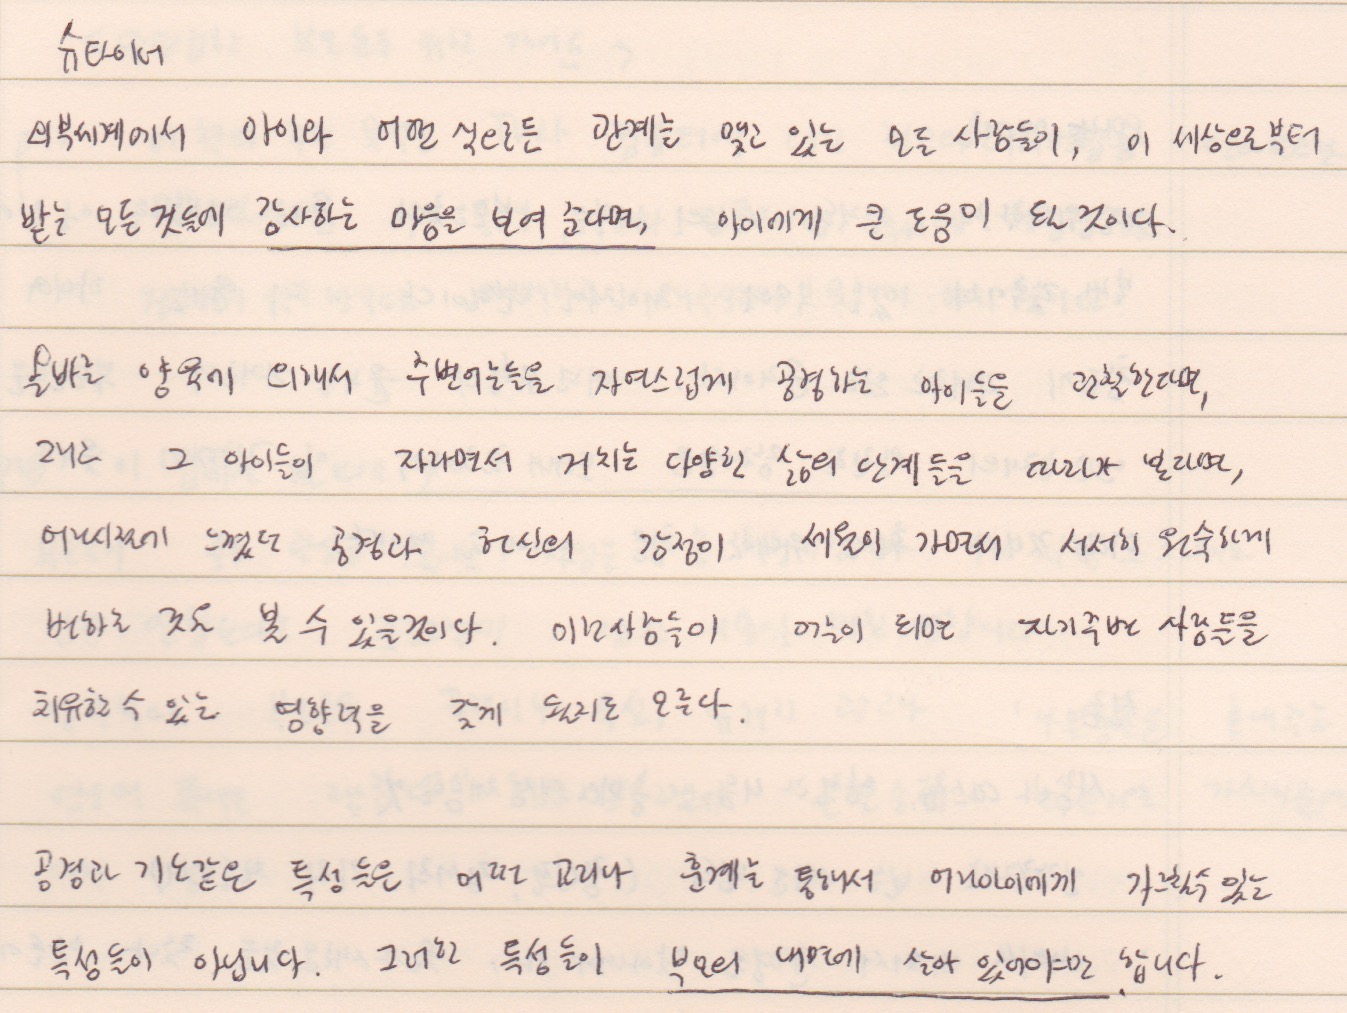 슈타이너
외부세계에서 아이와 어떤 식으로든 관계를 맺고 있는 모든 사람들이, 이 세상으로부터
받는 모든 것들에 감사하는 마음을 보여 준다면, 아이에게 큰 도움이 될 것이다.
올바른 양육에 의해서 주변어른들을 자연스럽게 공경하는 아이들을 관찰한다면,
그리고 그 아이들이 자라면서 거치는 다양한 삶의 단계들을 따라가 보라면,
어린시절에 느꼈던 공경과 헌신의 감정이 세월이 가면서 서서히 완숙하게
변하는 것도 볼 수 있을것이다. 이런사람들이 어른이 되면 자기주변 사람들을
치유할 수 있는 영향력을 갖게 될지도 모른다.
공경과 기도같은 특성들은 어떤 교리나 훈계를 통해서 어린아이에게 가르칠수 있는
특성들이 아닙니다. 그러한 특성들이 부모의 내면에 살아 있어야만 합니다.